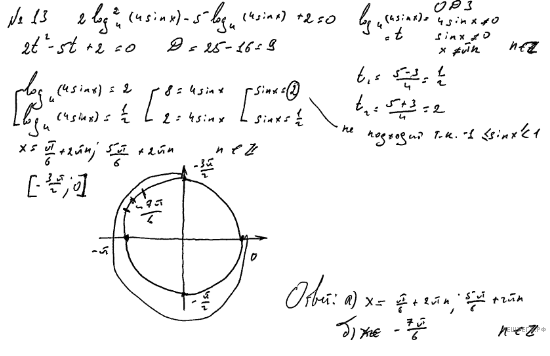 №13 2log₄²(4sinx)-5log₄(4sinx)+2=0
log₄(4sinx)=t
ОДЗ
4sinx≠0
sinx≠0
x≠πn n∈Z
2t²-5t+2=0 D=25-16=9
t₁=(5-3)/4=1/2
t₂=(5+3)/4=2
log₄(4sinx)=2 8=4sinx sinx=2
log₄(4sinx)=1/2 2=4sinx sinx=1/2
не подходит т.к. -1≤sinx≤1
x=π/6+2πn; 5π/6+2πn n∈Z
[-3π/2; 0]
-3π/2
-7π/6
-π
0
-π/2
Ответ: а) x=π/6+2πn; 5π/6+2πn
б) -7π/6 n∈Z